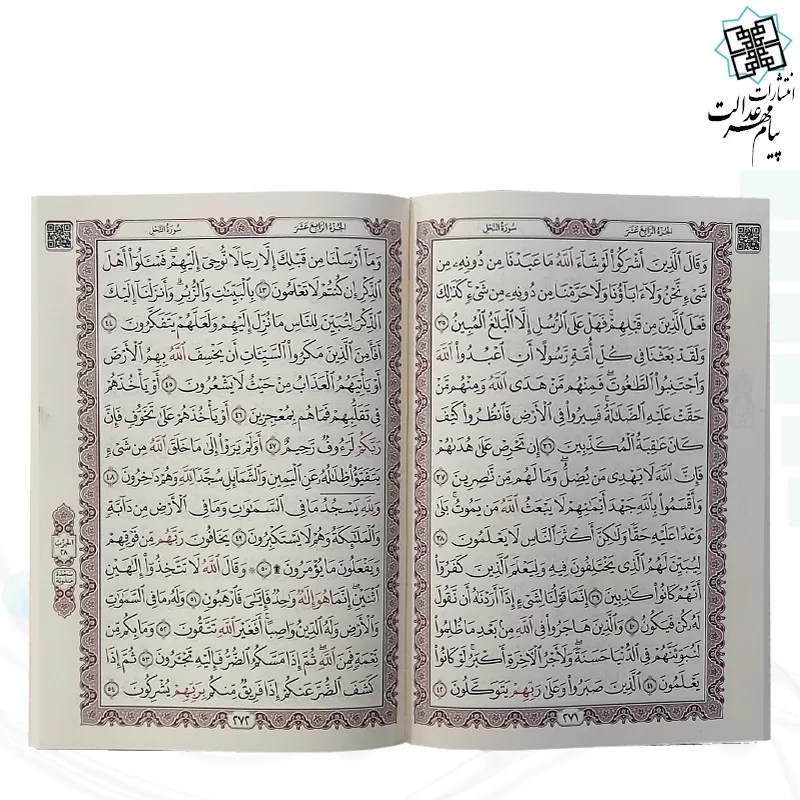 انتشارات
پیام مهر عدالت
الجزء الرابع عشر
سورة النحل
وَقَالَ ٱلَّذِينَ أَشۡرَكُواْ لَوۡ شَآءَ ٱللَّهُ مَا عَبَدۡنَا مِن دُونِهِۦ مِن
شَيۡءٖ نَّحۡنُ وَلَآ ءَابَآؤُنَا وَلَا حَرَّمۡنَا مِن دُونِهِۦ مِن شَيۡءٖۚ كَذَٰلِكَ
فَعَلَ ٱلَّذِينَ مِن قَبۡلِهِمۡۚ فَهَلۡ عَلَى ٱلرُّسُلِ إِلَّا ٱلۡبَلَٰغُ ٱلۡمُبِينُ ٣٥
وَلَقَدۡ بَعَثۡنَا فِي كُلِّ أُمَّةٖ رَّسُولًا أَنِ ٱعۡبُدُواْ ٱللَّهَ
وَٱجۡتَنِبُواْ ٱلطَّٰغُوتَۖ فَمِنۡهُم مَّنۡ هَدَى ٱللَّهُ وَمِنۡهُم مَّنۡ
حَقَّتۡ عَلَيۡهِ ٱلضَّلَٰلَةُۚ فَسِيرُواْ فِي ٱلۡأَرۡضِ فَٱنظُرُواْ كَيۡفَ
كَانَ عَٰقِبَةُ ٱلۡمُكَذِّبِينَ ٣٦ إِن تَحۡرِصۡ عَلَىٰ هُدَىٰهُمۡ
فَإِنَّ ٱللَّهَ لَا يَهۡدِي مَن يُضِلُّۖ وَمَا لَهُم مِّن نَّٰصِرِينَ ٣٧
وَأَقۡسَمُواْ بِٱللَّهِ جَهۡدَ أَيۡمَٰنِهِمۡ لَا يَبۡعَثُ ٱللَّهُ مَن يَمُوتُۚ بَلَىٰ
وَعۡدًا عَلَيۡهِ حَقّٗا وَلَٰكِنَّ أَكۡثَرَ ٱلنَّاسِ لَا يَعۡلَمُونَ ٣٨
لِيُبَيِّنَ لَهُمُ ٱلَّذِي يَخۡتَلِفُونَ فِيهِ وَلِيَعۡلَمَ ٱلَّذِينَ كَفَرُوٓاْ
أَنَّهُمۡ كَانُواْ كَٰذِبِينَ ٣٩ إِنَّمَا قَوۡلُنَا لِشَيۡءٍ إِذَآ أَرَدۡنَٰهُ أَن نَّقُولَ
لَهُۥ كُن فَيَكُونُ ٤٠ وَٱلَّذِينَ هَاجَرُواْ فِي ٱللَّهِ مِنۢ بَعۡدِ مَا ظُلِمُواْ
لَنُبَوِّئَنَّهُمۡ فِي ٱلدُّنۡيَا حَسَنَةٗۖ وَلَأَجۡرُ ٱلۡأٓخِرَةِ أَكۡبَرُۚ لَوۡ كَانُواْ
يَعۡلَمُونَ ٤١ ٱلَّذِينَ صَبَرُواْ وَعَلَىٰ رَبِّهِمۡ يَتَوَكَّلُونَ ٤٢
٢٧١
الجزء الرابع عشر
سورة النحل
وَمَآ أَرۡسَلۡنَا مِن قَبۡلِكَ إِلَّا رِجَالٗا نُّوحِيٓ إِلَيۡهِمۡۖ فَسۡـَٔلُوٓاْ أَهۡلَ
ٱلذِّكۡرِ إِن كُنتُمۡ لَا تَعۡلَمُونَ ٤٣ بِٱلۡبَيِّنَٰتِ وَٱلزُّبُرِۗ وَأَنزَلۡنَآ إِلَيۡكَ
ٱلذِّكۡرَ لِتُبَيِّنَ لِلنَّاسِ مَا نُزِّلَ إِلَيۡهِمۡ وَلَعَلَّهُمۡ يَتَفَكَّرُونَ ٤٤
أَفَأَمِنَ ٱلَّذِينَ مَكَرُواْ ٱلسَّيِّـَٔاتِ أَن يَخۡسِفَ ٱللَّهُ بِهِمُ ٱلۡأَرۡضَ
أَوۡ يَأۡتِيَهُمُ ٱلۡعَذَابُ مِنۡ حَيۡثُ لَا يَشۡعُرُونَ ٤٥ أَوۡ يَأۡخُذَهُمۡ
فِي تَقَلُّبِهِمۡ فَمَا هُم بِمُعۡجِزِينَ ٤٦ أَوۡ يَأۡخُذَهُمۡ عَلَىٰ تَخَوُّفٖ فَإِنَّ
رَبَّكُمۡ لَرَءُوفٞ رَّحِيمٌ ٤٧ أَوَلَمۡ يَرَوۡاْ إِلَىٰ مَا خَلَقَ ٱللَّهُ مِن شَيۡءٖ
يَتَفَيَّؤُاْ ظِلَٰلُهُۥ عَنِ ٱلۡيَمِينِ وَٱلشَّمَآئِلِ سُجَّدٗا لِّلَّهِ وَهُمۡ دَٰخِرُونَ ٤٨
وَلِلَّهِۤ يَسۡجُدُۤ مَا فِي ٱلسَّمَٰوَٰتِ وَمَا فِي ٱلۡأَرۡضِ مِن دَآبَّةٖ
وَٱلۡمَلَٰٓئِكَةُ وَهُمۡ لَا يَسۡتَكۡبِرُونَ ٤٩ يَخَافُونَ رَبَّهُم مِّن فَوۡقِهِمۡ
وَيَفۡعَلُونَ مَا يُؤۡمَرُونَ ۩ ٥٠ ۞ وَقَالَ ٱللَّهُ لَا تَتَّخِذُوٓاْ إِلَٰهَيۡنِ
ٱثۡنَيۡنِۖ إِنَّمَا هُوَ إِلَٰهٞ وَٰحِدٞ فَإِيَّٰيَ فَٱرۡهَبُونِ ٥١ وَلَهُۥ مَا فِي ٱلسَّمَٰوَٰتِ
وَٱلۡأَرۡضِ وَلَهُ ٱلدِّينُ وَاصِبًاۚ أَفَغَيۡرَ ٱللَّهِ تَتَّقُونَ ٥٢ وَمَا بِكُم مِّن
نِّعۡمَةٖ فَمِنَ ٱللَّهِۖ ثُمَّ إِذَا مَسَّكُمُ ٱلضُّرُّ فَإِلَيۡهِ تَجۡـَٔرُونَ ٥٣ ثُمَّ إِذَا
كَشَفَ ٱلضُّرَّ عَنكُمۡ إِذَا فَرِيقٞ مِّنكُم بِرَبِّهِمۡ يُشۡرِكُونَ ٥٤
الحزب
٢٨
سجدة
مندوبة
٢٧٢